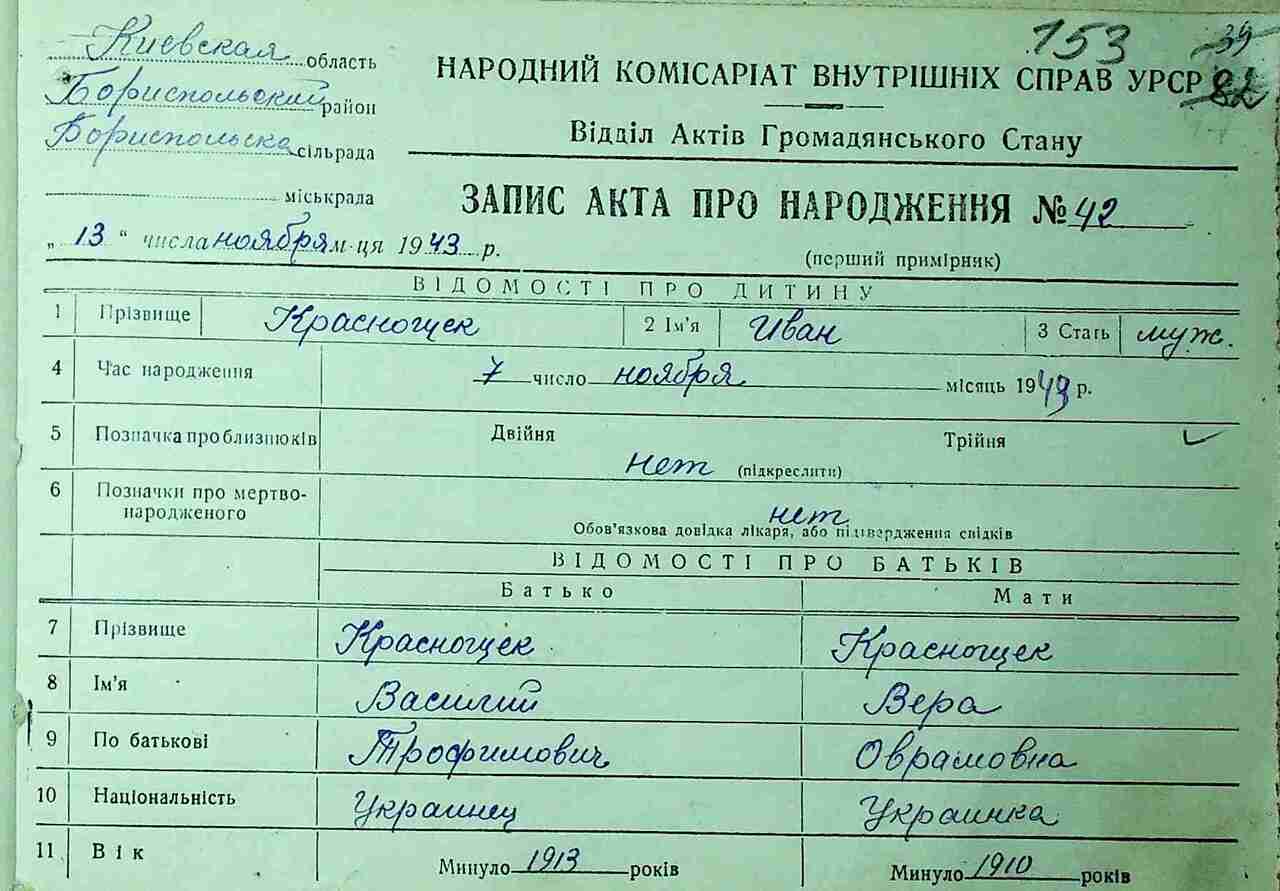 153 39
Киевская область
НАРОДНИЙ КОМІСАРІАТ ВНУТРІШНІХ СПРАВ УРСР 82
Бориспольский район
Відділ Актів Громадянського Стану
Бориспольска сільрада
міськрада
ЗАПИС АКТА ПРО НАРОДЖЕННЯ № 42
„ 13 “ числа ноября м-ця 1943 р.
(перший примірник)
ВІДОМОСТІ ПРО ДИТИНУ
1 Прізвище Красногщек 2 Ім'я Иван 3 Стать муж.
4 Час народження 7 число ноября місяць 1943 р.
5 Позначка про близнюків Двійня Трійня
нет (підкреслити)
6 Позначки про мертво-
народженого нет
Обов'язкова довідка лікаря, або підтвердження свідків
ВІДОМОСТІ ПРО БАТЬКІВ
Батько Мати
7 Прізвище Красногщек Красногщек
8 Ім'я Василий Вера
9 По батькові Трофимович Оврамовна
10 Національність Украинец Украинка
11 Вік Минуло 1913 років Минуло 1910 років